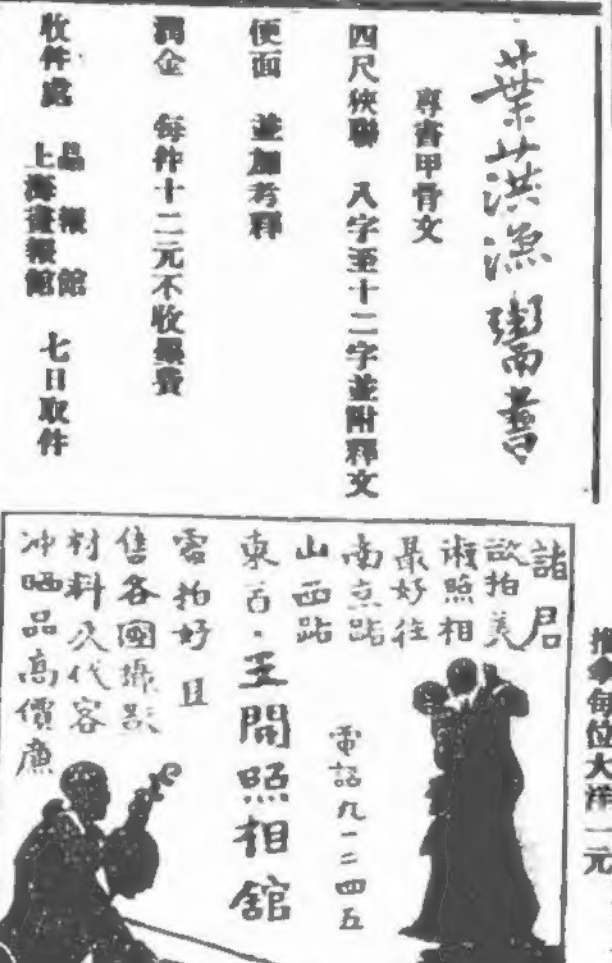 葉葓漁鬻書
專書甲骨文
四尺狹聯 八字至十二字並附釋文
便面 並加考釋
潤金 每件十二元不收墨費
收件處 晶報館 上海畫報館 七日取件
諸君
欲拍美
術照相
最好往
南京路
山西路
東首·王開照相舘
電話九一二四五
零拍好且
售各國攝影
材料及代客
冲晒品高價廉
每位大洋一元